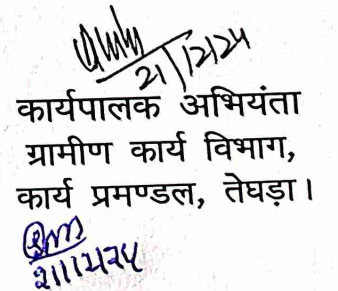 21/12/24
कार्यपालक अभियंता
ग्रामीण कार्य विभाग,
कार्य प्रमण्डल, तेघड़ा।
21/12/24